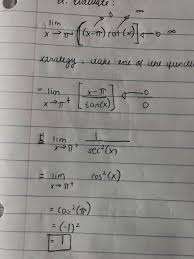 a. evaluate:
lim x→π⁺ [(x-π) cot(x)] ← 0 ∞
strategy: make one of the
= lim x→π⁺ [x-π / tan(x)] ← 0 / 0
lim x→π⁺ 1 / sec²(x)
= lim x→π⁺ cos²(x)
= cos²(π)
= (-1)²
= 1